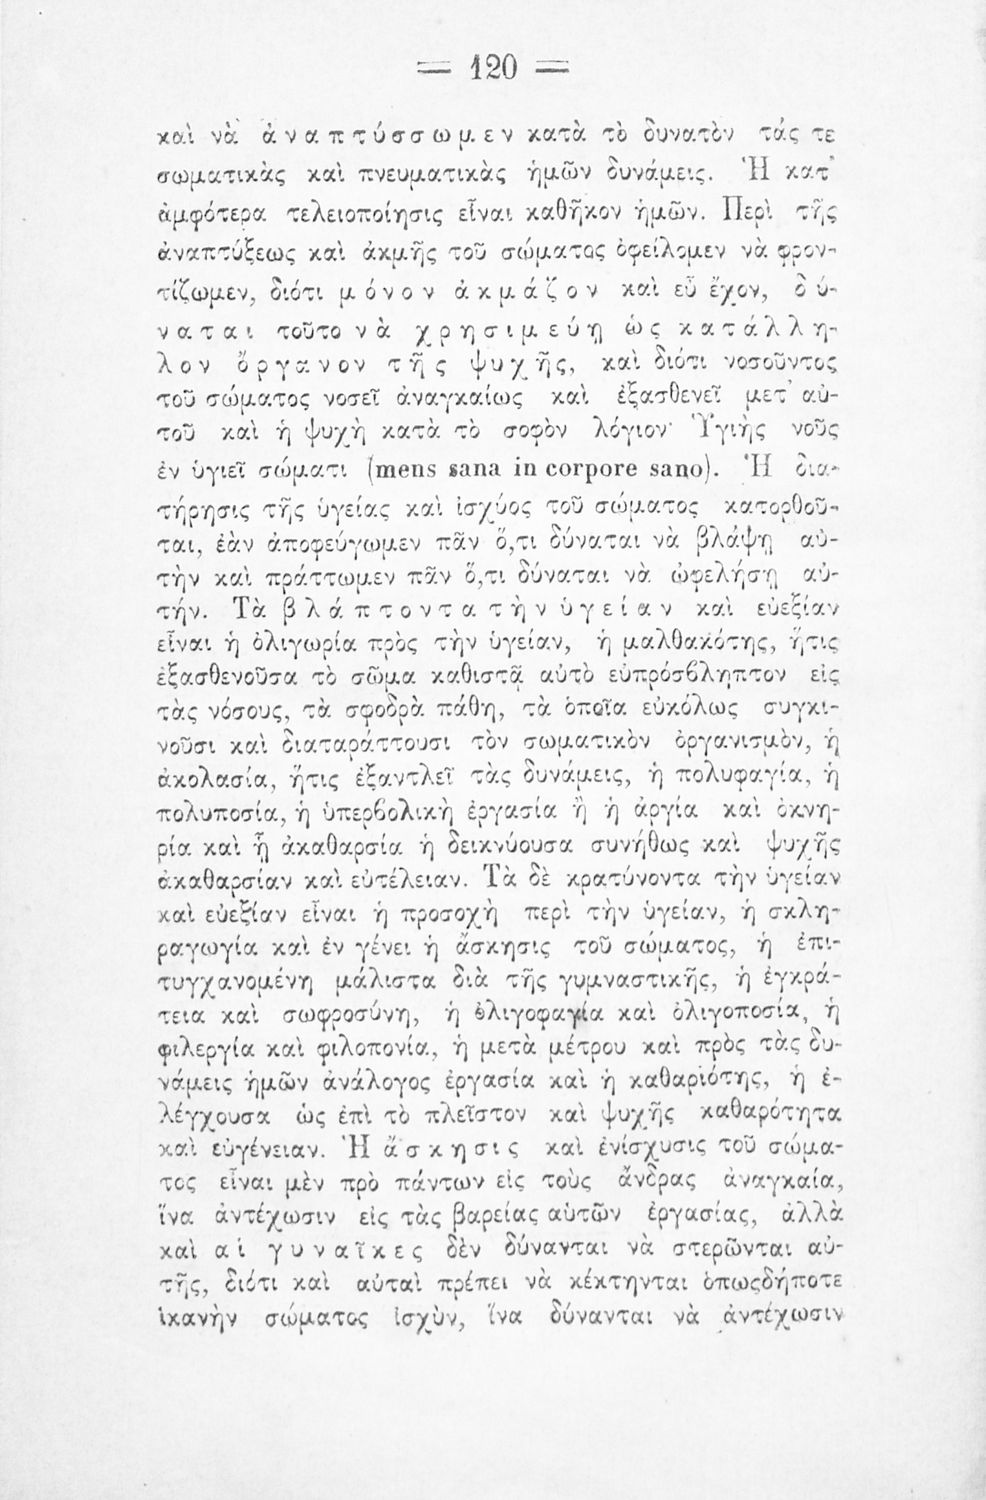 = 120 =
καὶ νὰ ἀναπτύσσωμεν κατὰ τὸ δυνατὸν τάς τε
σωματικὰς καὶ πνευματικὰς ἡμῶν δυνάμεις. Ἡ κατ᾽
ἀμφότερα τελειοποίησις εἶναι καθῆκον ἡμῶν. Περὶ τῆς
ἀναπτύξεως καὶ ἀκμῆς τοῦ σώματος ὀφείλομεν νὰ φρον-
τίζωμεν, διότι μόνον ἀκμάζον καὶ εὖ ἔχον, δύ-
ναται τοῦτο νὰ χρησιμεύῃ ὡς κατάλλη-
λον ὄργανον τῆς ψυχῆς, καὶ διότι νοσοῦντος
τοῦ σώματος νοσεῖ ἀναγκαίως καὶ ἐξασθενεῖ μετ᾽ αὐ-
τοῦ καὶ ἡ ψυχὴ κατὰ τὸ σοφὸν λόγιον· Ὑγιὴς νοῦς
ἐν ὑγιεῖ σώματι (mens sana in corpore sano). Ἡ δια-
τήρησις τῆς ὑγείας καὶ ἰσχύος τοῦ σώματος κατορθοῦ-
ται, ἐὰν ἀποφεύγωμεν πᾶν ὅ,τι δύναται νὰ βλάψῃ αὐ-
τὴν καὶ πράττωμεν πᾶν ὅ,τι δύναται νὰ ὠφελήσῃ αὐ-
τήν. Τὰ βλάπτοντα τὴν ὑγείαν καὶ εὐεξίαν
εἶναι ἡ ὀλιγωρία πρὸς τὴν ὑγείαν, ἡ μαλθακότης, ἥτις
ἐξασθενοῦσα τὸ σῶμα καθιστᾷ αὐτὸ εὐπρόσβληπτον εἰς
τὰς νόσους, τὰ σφοδρὰ πάθη, τὰ ὁποῖα εὐκόλως συγκι-
νοῦσι καὶ διαταράττουσι τὸν σωματικὸν ὀργανισμὸν, ἡ
ἀκολασία, ἥτις ἐξαντλεῖ τὰς δυνάμεις, ἡ πολυφαγία, ἡ
πολυποσία, ἡ ὑπερβολικὴ ἐργασία ἢ ἡ ἀργία καὶ ὀκνη-
ρία καὶ ᾗ ἀκαθαρσία ἡ δεικνύουσα συνήθως καὶ ψυχῆς
ἀκαθαρσίαν καὶ εὐτέλειαν. Τὰ δὲ κρατύνοντα τὴν ὑγείαν
καὶ εὐεξίαν εἶναι ἡ προσοχὴ περὶ τὴν ὑγείαν, ἡ σκλη-
ραγωγία καὶ ἐν γένει ἡ ἄσκησις τοῦ σώματος, ἡ ἐπι-
τυγχανομένη μάλιστα διὰ τῆς γυμναστικῆς, ἡ ἐγκρά-
τεια καὶ σωφροσύνη, ἡ ὀλιγοφαγία καὶ ὀλιγοποσία, ἡ
φιλεργία καὶ φιλοπονία, ἡ μετὰ μέτρου καὶ πρὸς τὰς δυ-
νάμεις ἡμῶν ἀνάλογος ἐργασία καὶ ἡ καθαριότης, ἡ ἐ-
λέγχουσα ὡς ἐπὶ τὸ πλεῖστον καὶ ψυχῆς καθαρότητα
καὶ εὐγένειαν. Ἡ ἄσκησις καὶ ἐνίσχυσις τοῦ σώμα-
τος εἶναι μὲν πρὸ πάντων εἰς τοὺς ἄνδρας ἀναγκαία,
ἵνα ἀντέχωσιν εἰς τὰς βαρείας αὑτῶν ἐργασίας, ἀλλὰ
καὶ αἱ γυναῖκες δὲν δύνανται νὰ στερῶνται αὐ-
τῆς, διότι καὶ αὐταὶ πρέπει νὰ κέκτηνται ὁπωςδήποτε
ἱκανὴν σώματος ἰσχὺν, ἵνα δύνανται νὰ ἀντέχωσιν